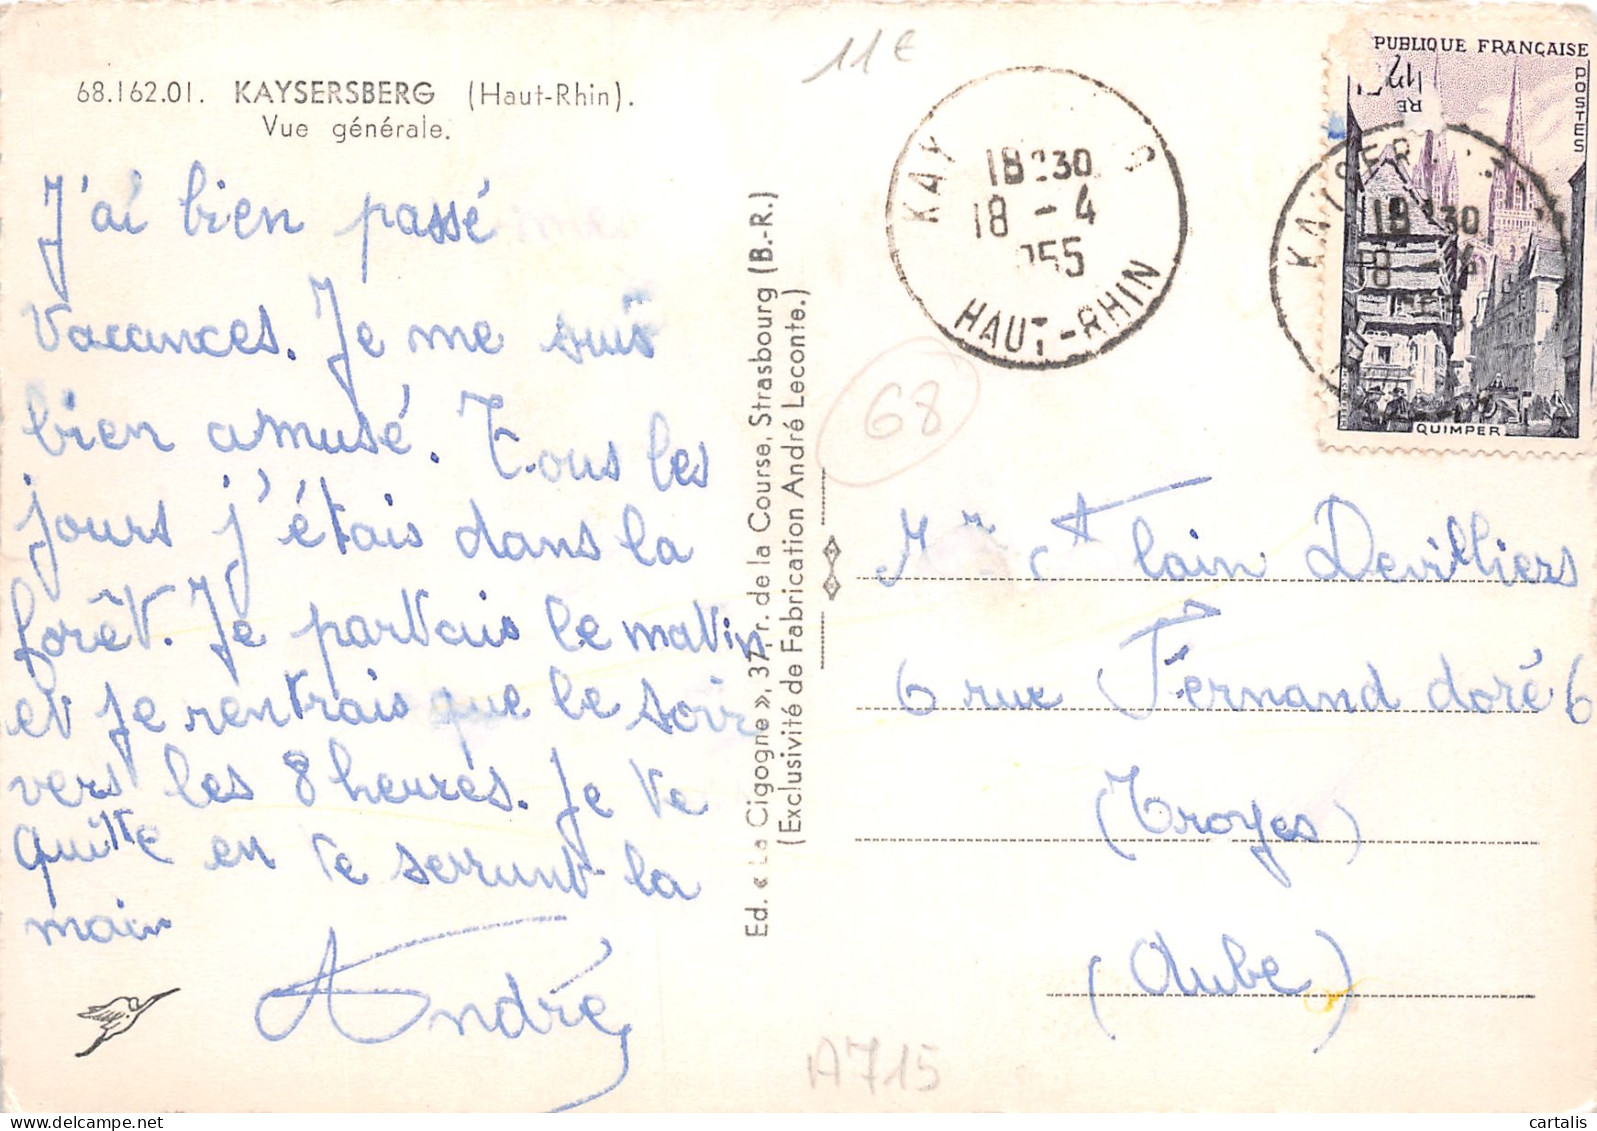 11€
68.162.01. KAYSERSBERG (Haut-Rhin).
Vue générale.
J'ai bien passé
vacances. Je me suis
bien amusé. Tous les
jours j'étais dans la
forêt. Je partais le matin
et je rentrais que le soir
vers les 8 heures. Je te
quitte en te serrunt la
main
André
Ed. « La Cigogne », 37, r. de la Course, Strasbourg (B.-R.)
(Exclusivité de Fabrication André Leconte.)
KAY
18 30
18 - 4
55
HAUT-RHIN
68
PUBLIQUE FRANÇAISE
POSTES
RE
12F
QUIMPER
KAYSER
18 30
18 - 4
Alain Devilliers
6 rue Fernand doré 6
(Troyes)
(Aube)
A715
cartalis